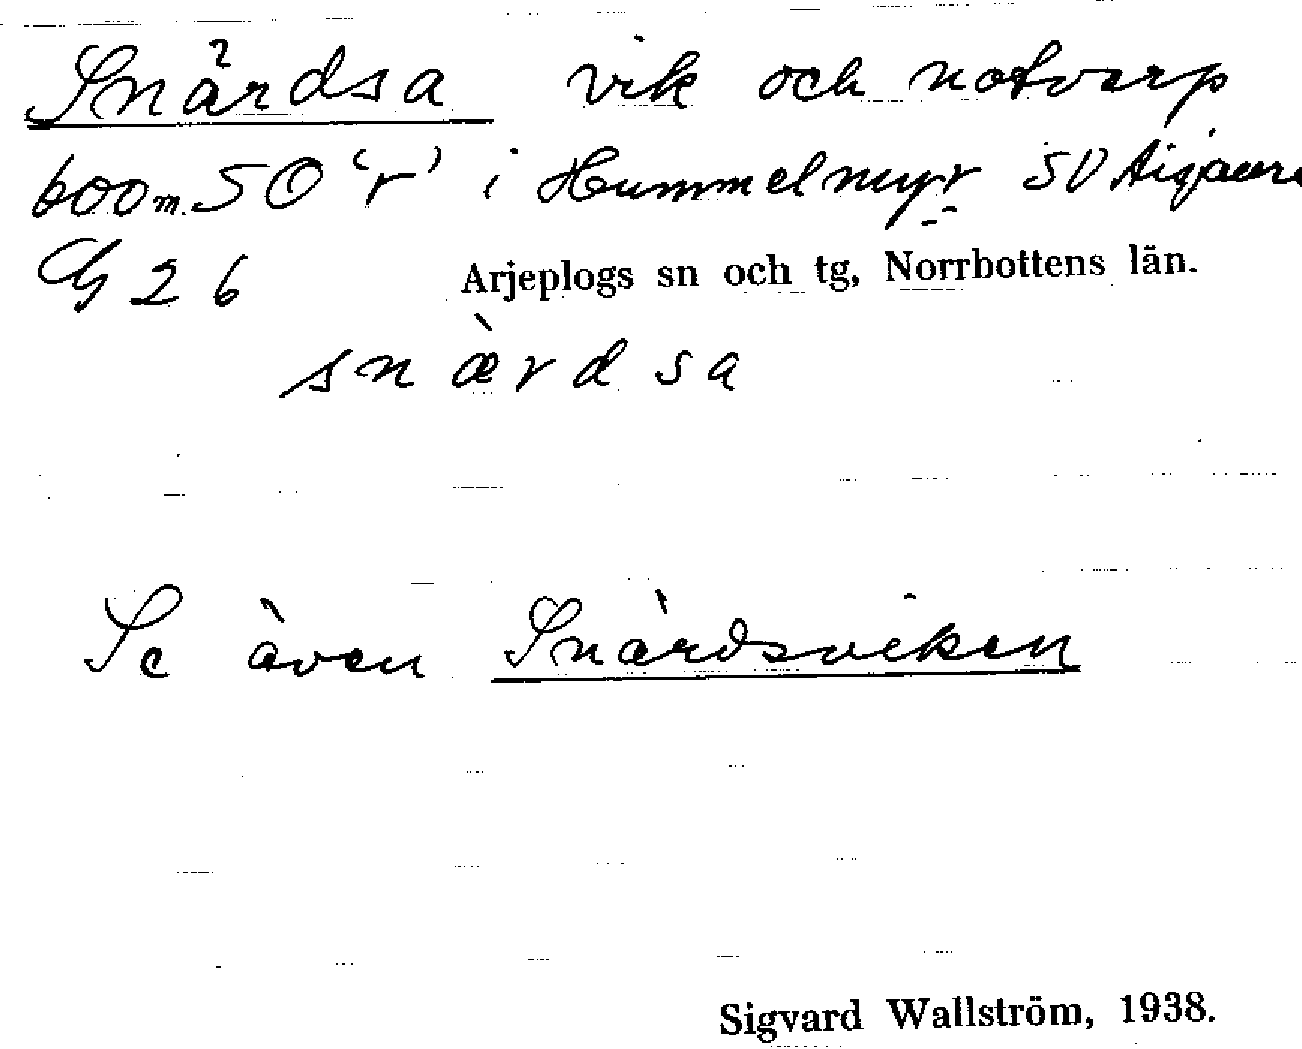 Snärdsa vik och notvarp
600 m. SO 'r' i Hummelmyrr SV Aisjaure
G 26 Arjeplogs sn och tg, Norrbottens län.
snæ̀rdsa
Se även Snärdsviken
Sigvard Wallström, 1938.